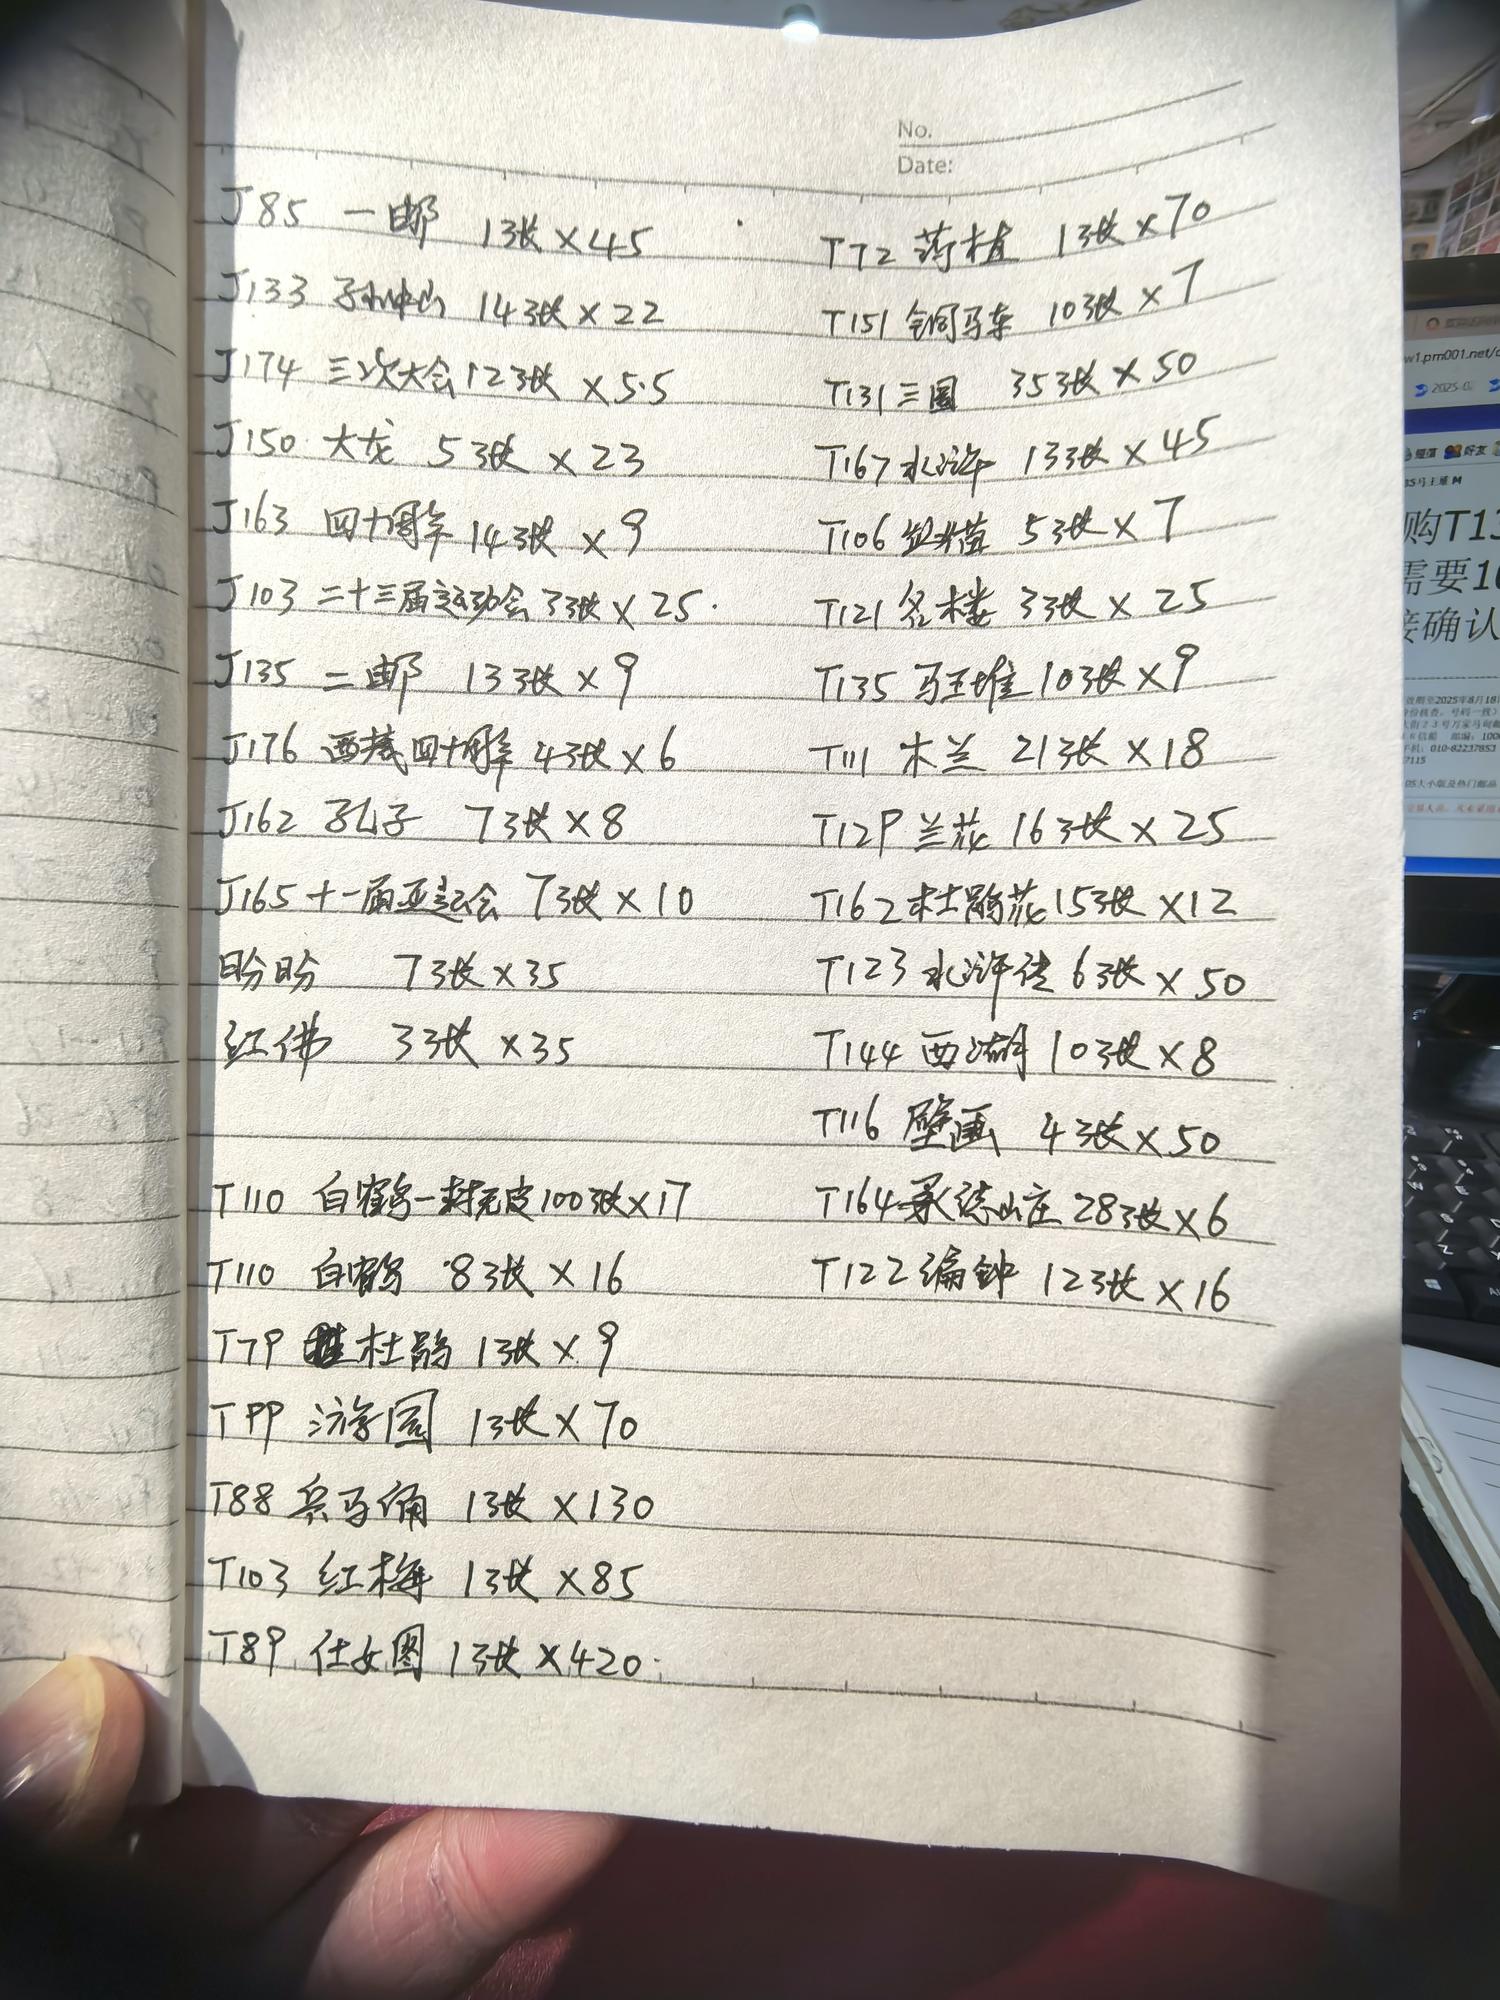 No.
Date:
J85 一邮 1张×45
J133 孙中山 14张×22
J174 三次大会 12张×5.5
J150 大龙 5张×23
J163 四十周年 14张×9
J103 二十三届运动会 3张×25.
J135 二邮 13张×9
J176 西藏四十周年 4张×6
J162 孔子 7张×8
J165 十一届亚运会 7张×10
盼盼 7张×35
红佛 3张×35
T110 白鹤一封无皮100张×17
T110 白鹤 8张×16
T79 杜鹃 1张×9
T99 游园 1张×70
T88 兵马俑 1张×130
T103 红梅 1张×85
T89 仕女图 1张×420.
T72 药植 1张×70
T151 铜马车 10张×7
T131 三国 35张×50
T167 水浒 13张×45
T106 熊猫 5张×7
T121 名楼 3张×25
T135 马王堆 10张×9
T111 木兰 21张×18
T129 兰花 16张×25
T162 杜鹃花 15张×12
T123 水浒传 6张×50
T144 西湖 10张×8
T116 壁画 4张×50
T164 承德山庄 28张×6
T122 编钟 12张×16
w1.pm001.net/
2025-0
短信 好友
马王堆 M
购T13
需要10
接确认
效期至2025年8月18
份核查，号码一致）
大街23号万家马甸邮
信箱 邮编：1000
手机：010-82237853
7115
大小版及热门邮品